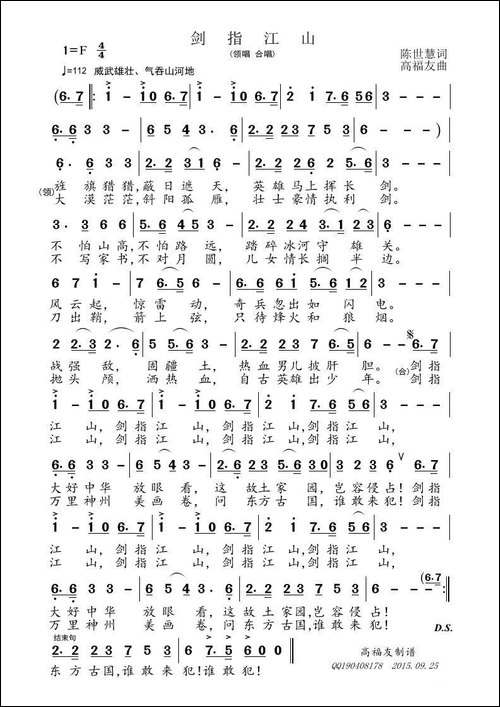 剑 指 江 山
(领唱 合唱)
1=F 4/4
陈世慧词
高福友曲
♩=112 威武雄壮、气吞山河地
(6·7 ‖: i - i0 6·7 | i - i0 6·7 | 2 i 7 6 56 | 3 - - - |
6·6 3 3 - | 6 5 4 3 - | 2·2 2 3 7 5 3 | 6 - - - )
6· 6 3 3 | 2·2 2 3 1 6 | 2·2 3 6 2 5·6 | 3 - - - |
(领)旌 旗猎猎,蔽日遮 天, 英雄马上挥长 剑。
大 漠茫茫,斜阳孤 雁, 壮士豪情执利 剑。
3· 3 6 6 | 5·6 4 5 3 | 2·2 2 4 3· 1 2 3 | 6 - - - |
不 怕山高,不怕路 远, 踏碎冰河守 雄 关。
不 写家书,不对月 圆, 儿女情长搁 半 边。
6 7 i - | 7 6 5 6 - | 6·6 6 5 2 4 6 | 3 - - - |
风云起, 惊雷 动, 奇兵忽出如 闪 电。
刀出鞘, 箭上 弦, 只待烽火和 狼 烟。
战强 敌, 固疆 土, 热血男儿披肝 胆。(合)剑指
抛头 颅, 洒热 血, 自古英雄出少 年。 剑指
i - i0 6·7 | i - i0 6·7 | 2 i 7 6 56 | 3 - - - |
江 山,剑指江 山,剑指江 山,
江 山,剑指江 山,剑指江 山,
大好中华 放眼 看,这 故土家 园,岂容侵占!剑指
万里神州 美画 卷,问 东方古 国,谁敢来犯!剑指
i - i0 6·7 | i - i0 6·7 | 2 i 7 6 56 | 3 - - - |
江 山,剑指江 山,剑指江 山,
江 山,剑指江 山,剑指江 山,
大好中华 放眼 看,这故土家园,岂容侵 占!
万里神州 美画 卷,问东方古国,谁敢来 犯!
D.S.
结束句
2·2 2 3 7 5 3 | 6 7 5 | 6 - - - | 6 0 0 0 ‖
东方古国,谁敢来 犯!谁敢 犯!
高福友制谱
QQ190408178 2015.09.25